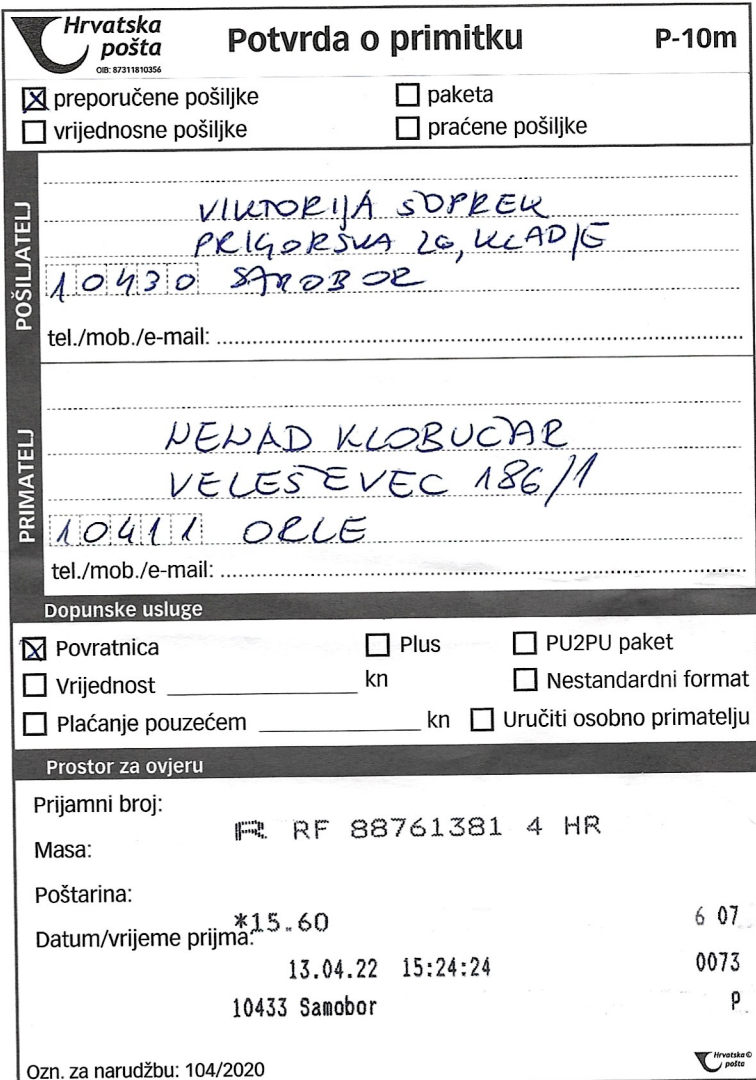 Hrvatska pošta
OIB: 87311810356
Potvrda o primitku
P-10m
preporučene pošiljke
paketa
vrijednosne pošiljke
praćene pošiljke
POŠILJATELJ
VIKTORIJA SOPREK
PRIGORSKA 26, KLADJE
10430 SAMOBOR
tel./mob./e-mail:
PRIMATELJ
NENAD KLOBUČAR
VELEŠEVEC 186/1
10411 ORLE
tel./mob./e-mail:
Dopunske usluge
Povratnica
Plus
PU2PU paket
Vrijednost kn
Nestandardni format
Plaćanje pouzećem kn
Uručiti osobno primatelju
Prostor za ovjeru
Prijamni broj:
R RF 88761381 4 HR
Masa:
Poštarina:
*15.60
6 07
Datum/vrijeme prijma:
13.04.22 15:24:24
0073
10433 Samobor
P
Ozn. za narudžbu: 104/2020
Hrvatska© pošta